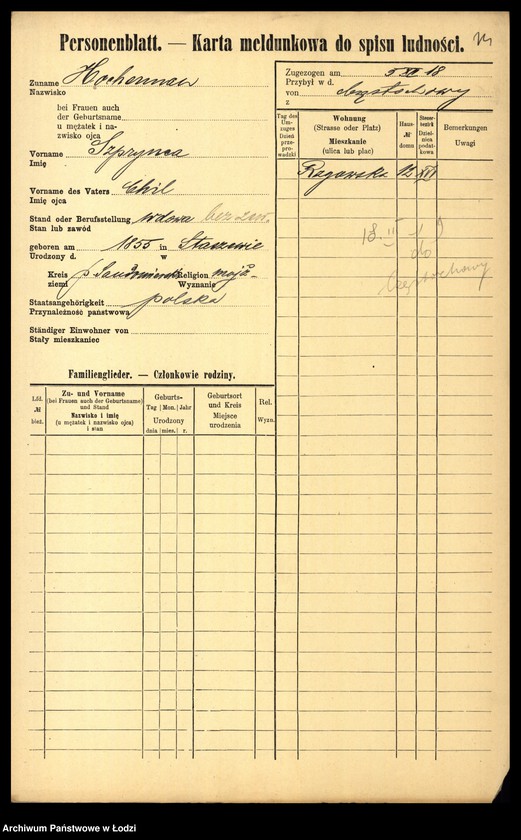 Personenblatt. — Karta meldunkowa do spisu ludności.
Zuname Hocherman
Nazwisko
bei Frauen auch
der Geburtsname
u mężatek i na-
zwisko ojca
Vorname Szprynca
Imię
Vorname des Vaters Chil
Imię ojca
Stand oder Berufsstellung wdowa bez zaw.
Stan lub zawód
geboren am 1855 in Staszowie
Urodzony d. w
Kreis p. Sandomierski Religion mojż.
ziemi Wyznanie
Staatsangehörigkeit polska
Przynależność państwowa
Ständiger Einwohner von
Stały mieszkaniec
Zugezogen am 5 XII 18
Przybył w d.
von Częstochowy
z
Tag des
Um-
zuges
Dzień
prze-
prowadzki
Wohnung
(Strasse oder Platz)
Mieszkanie
(ulica lub plac)
Haus-
№
domu
Steuer-
bezirk
Dziel-
nica
podat-
kowa
Bemerkungen
Uwagi
12 XVI
18 II 19
do
Częstochowy
Familienglieder. — Członkowie rodziny.
Lfd.
№
bież.
Zu- und Vorname
(bei Frauen auch der Geburtsname)
und Stand
Nazwisko i imię
(u mężatek i nazwisko ojca)
i stan
Geburts-
Tag Mon. Jahr
Urodzony
dnia mies. r.
Geburtsort
und Kreis
Miejsce
urodzenia
Rel.
Wyzn.
Archiwum Państwowe w Łodzi